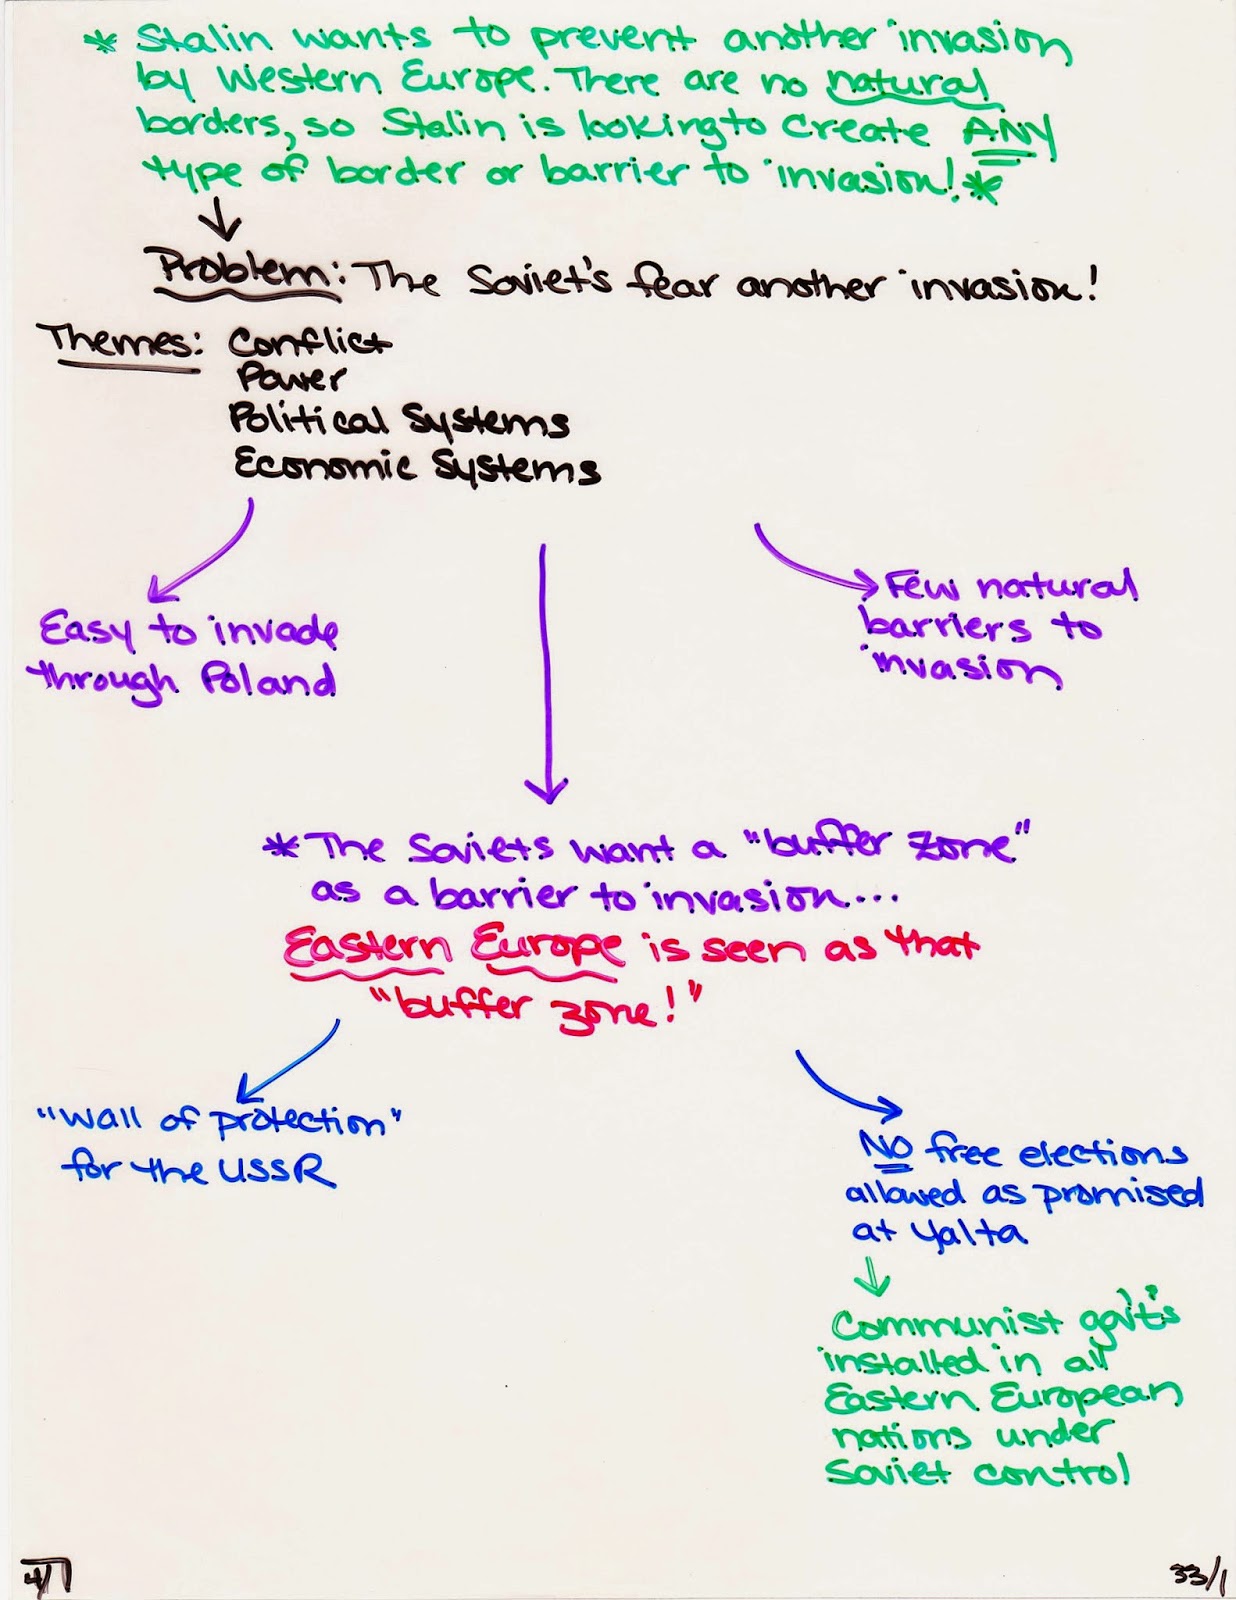 * Stalin wants to prevent another invasion
by Western Europe. There are no natural
borders, so Stalin is looking to create ANY
type of border or barrier to invasion! *
Problem: The Soviet's fear another invasion!
Themes: Conflict
Power
Political Systems
Economic Systems
Easy to invade
through Poland
Few natural
barriers to
invasion
* The Soviets want a "buffer zone"
as a barrier to invasion....
Eastern Europe is seen as that
"buffer zone!"
"wall of protection"
for the USSR
NO free elections
allowed as promised
at Yalta
Communist gov't's
installed in all
Eastern European
nations under
Soviet control
33/1